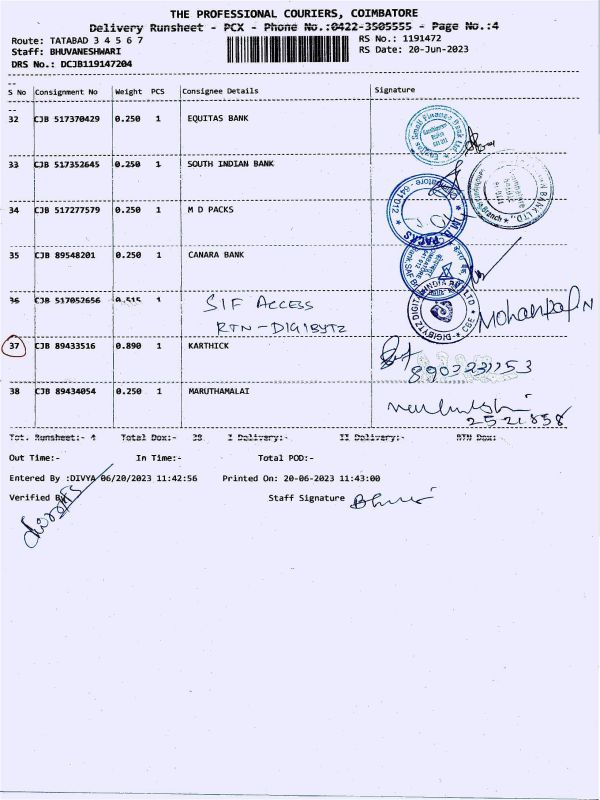 THE PROFESSIONAL COURIERS, COIMBATORE
Delivery Runsheet - PCX - Phone No.:0422-3505555 - Page No.:4
Route: TATABAD 3 4 5 6 7
RS No.: 1191472
Staff: BHUVANESHWARI
RS Date: 20-Jun-2023
DRS No.: DCJB119147204
S No Consignment No Weight PCS Consignee Details Signature
32 CJB 517370429 0.250 1 EQUITAS BANK
33 CJB 517352645 0.250 1 SOUTH INDIAN BANK
34 CJB 517277579 0.250 1 M D PACKS
35 CJB 89548201 0.250 1 CANARA BANK
36 CJB 517052656 0.515 1 SIF ACCESS
RTN - DIGIBYTZ
37 CJB 89433516 0.890 1 KARTHICK
38 CJB 89434054 0.250 1 MARUTHAMALAI
Tot. Runsheet:- 4 Total Dox:- 38 I Delivery:- II Delivery:- RTN Dox:-
Out Time:- In Time:- Total POD:-
Entered By :DIVYA 06/20/2023 11:42:56 Printed On: 20-06-2023 11:43:00
Verified By Staff Signature